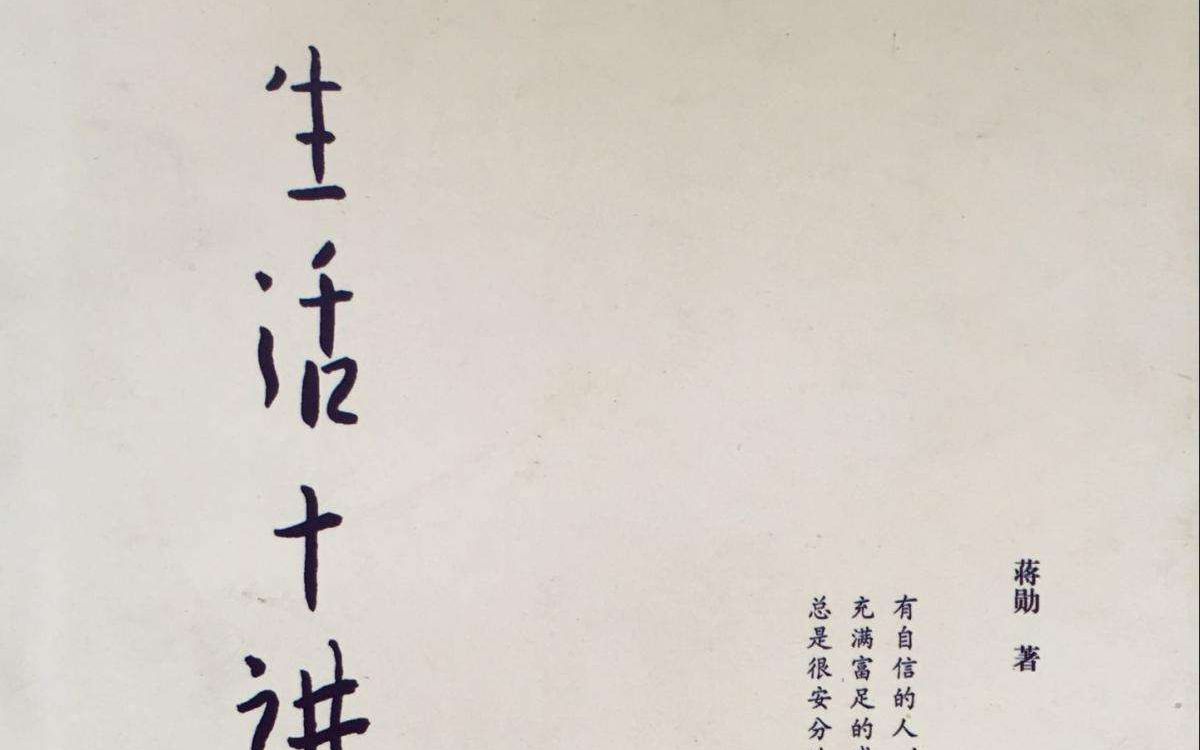 生活十讲
蒋勋 著
有自信的人
充满富足的
总是很安分